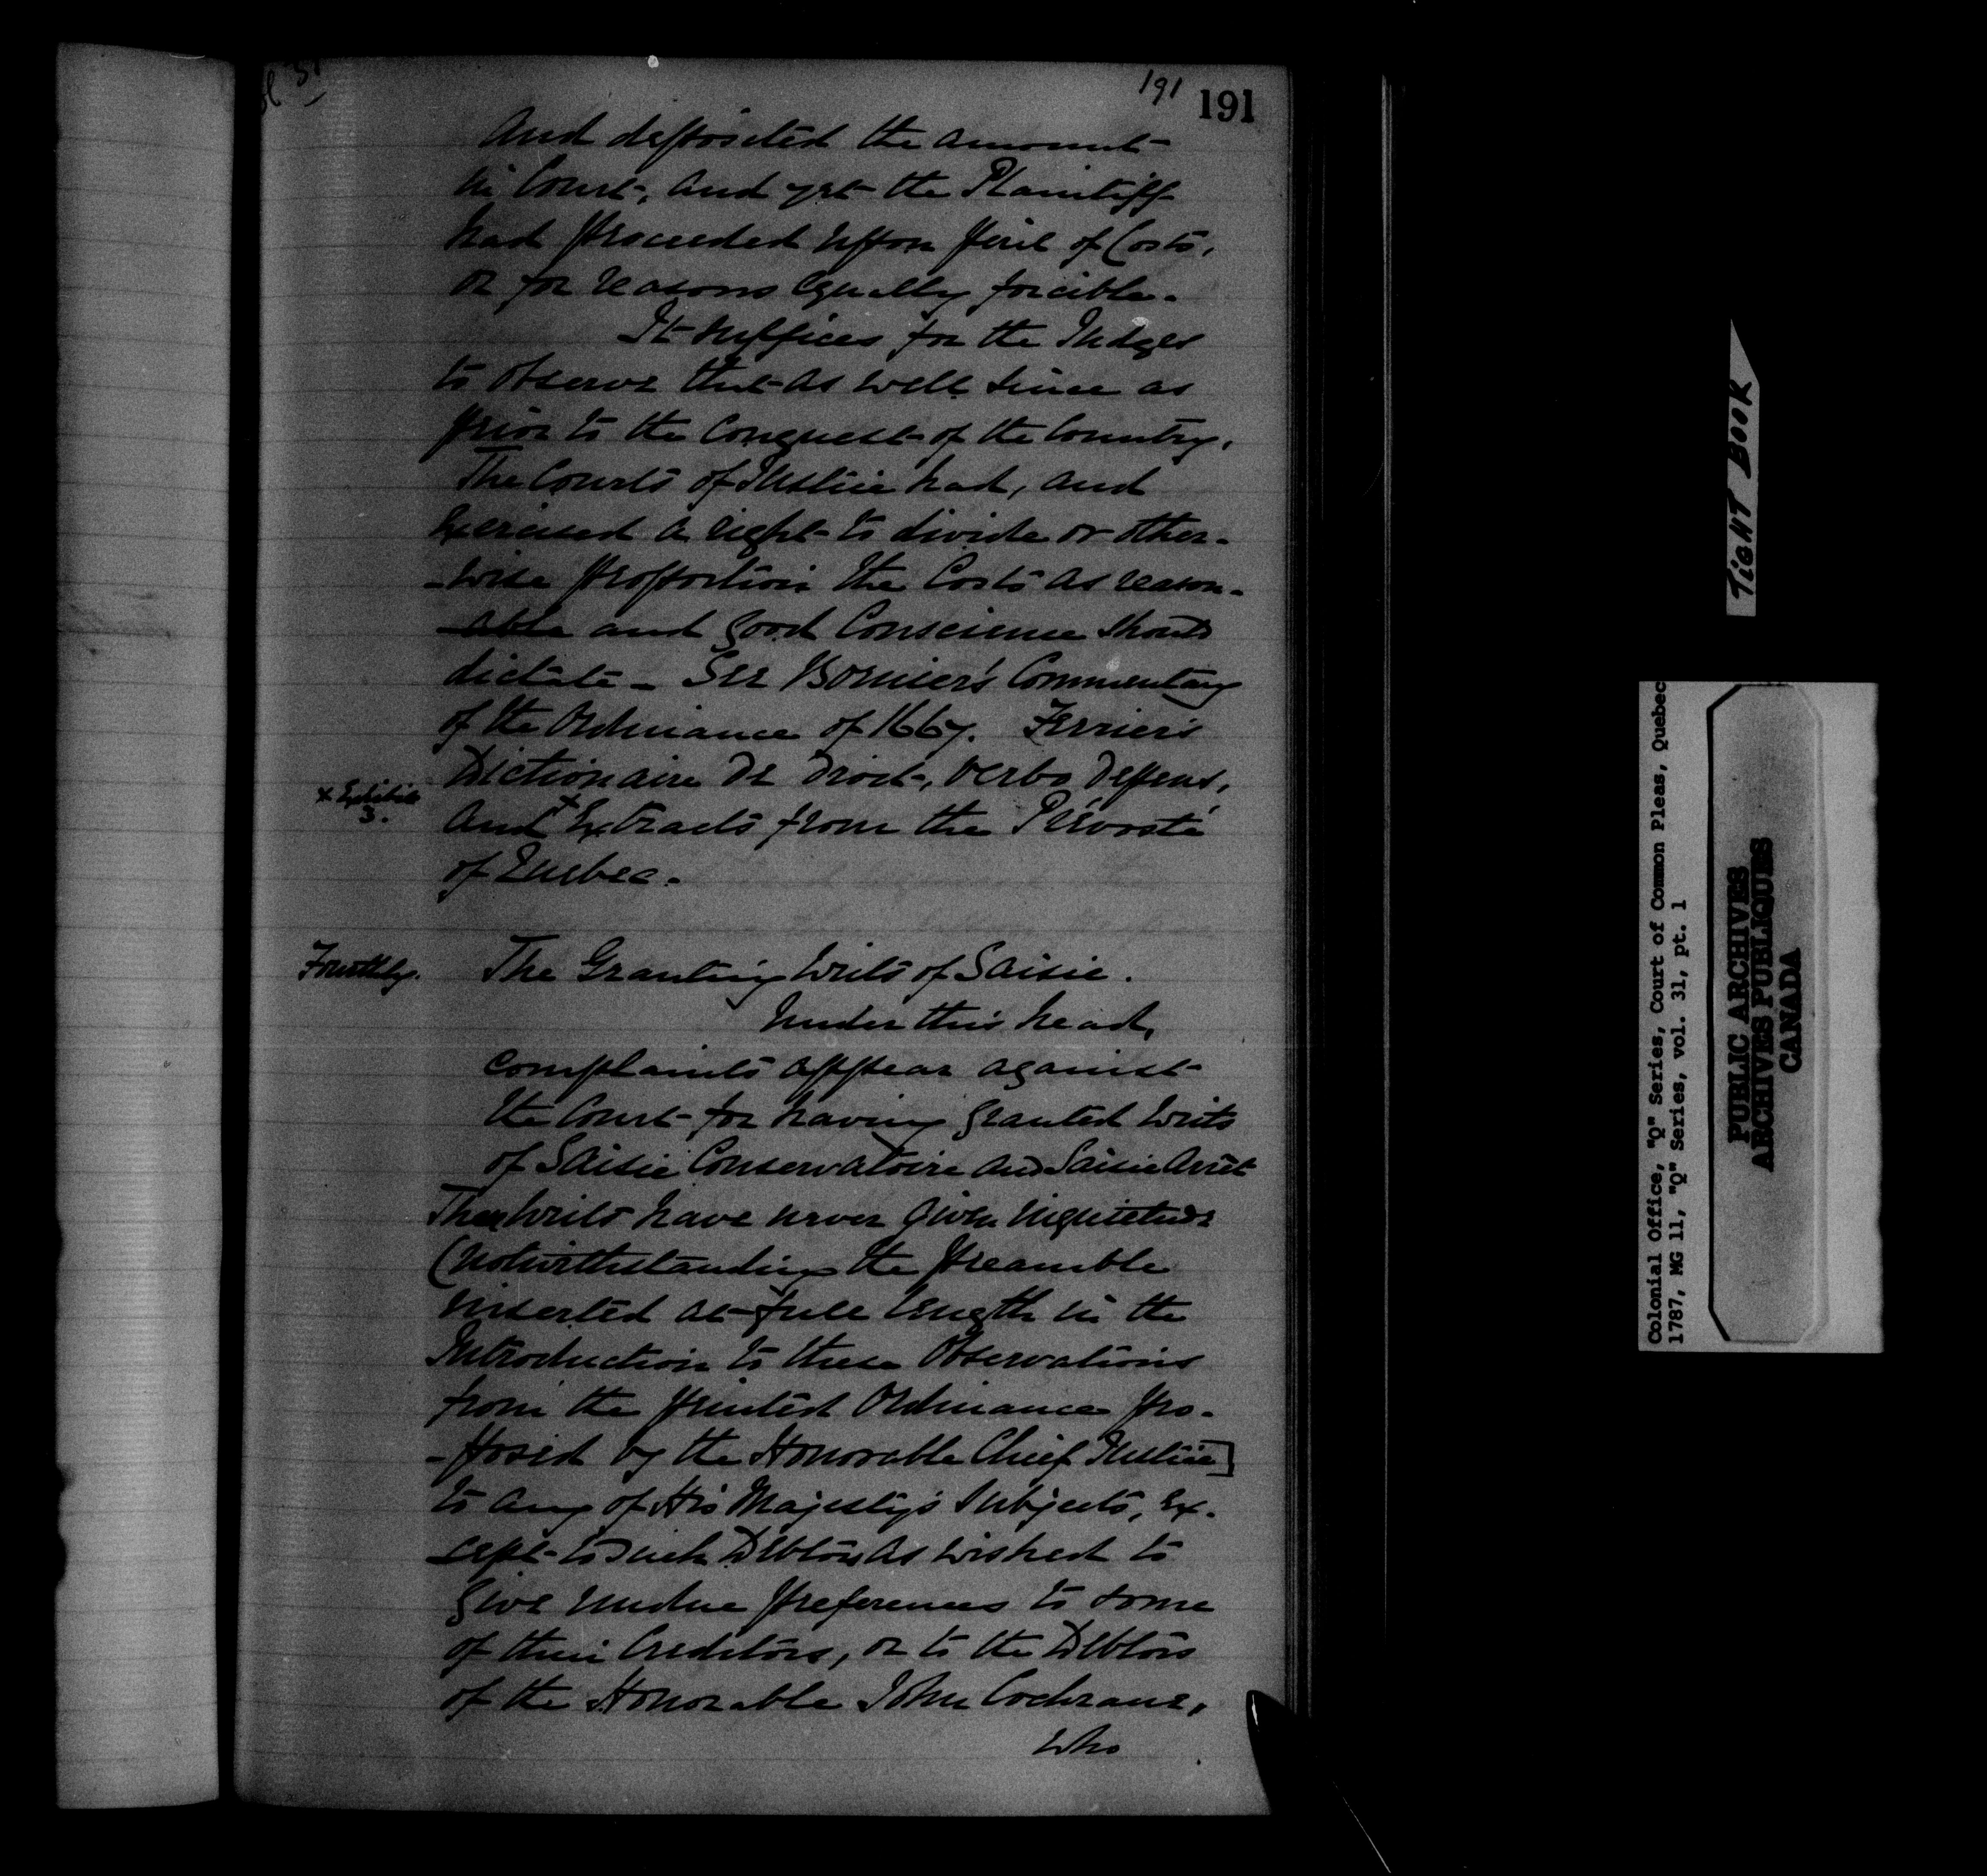 191 191
And deposited the amount
in Court, and yet the Plaintiff
had proceeded upon peril of Costs,
or for reasons equally forcible.
It suffices for the Judges
to observe that as well since as
prior to the Conquest of the Country,
The Courts of Justice had, and
Exercised a right to divide or other-
-wise proportion the Costs as reason-
-able and good Conscience should
dictate - See Bornier's Commentary
of the Ordinance of 1667. Ferrier's
Dictionaire de Droit, verbo Depens,
x Exhibit
3.
And x Extracts from the Prévosté
of Quebec.
Fourthly. The Granting Writs of Saisie.
Under this head,
complaints appear against
the Court for having granted writs
of Saisie Conservatoire and Saisie Arrêt
These Writs have never given inquietude
(notwithstanding the preamble
inserted at full length in the
Introduction to these Observations
from the printed Ordinance pro-
-posed by the Honorable Chief Justice]
to any of His Majesty's Subjects, Ex-
-cept to such Debtors as wished to
give undue preferences to some
of their Creditors, or to the Debtors
of the Honorable John Cochrane,
Who
TIGHT BOOK
Colonial Office, "Q" Series, Court of Common Pleas, Quebec
1787, MG 11, "Q" Series, vol. 31, pt. 1
PUBLIC ARCHIVES
ARCHIVES PUBLIQUES
CANADA